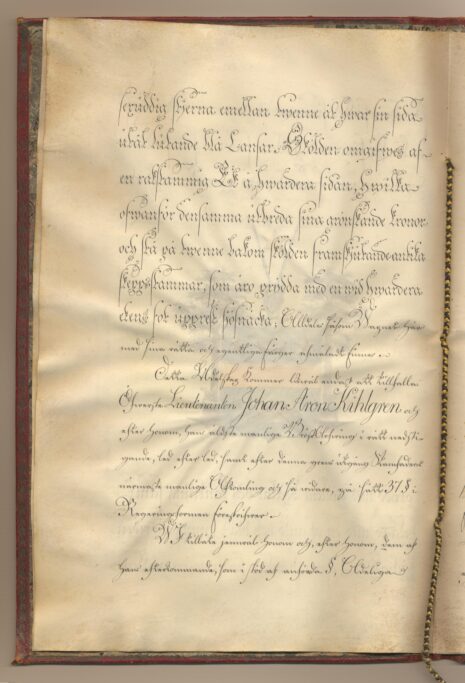 sexuddig stjerna emellan twenne åt hwar sin sida
utåt lutande blå Lansar. Skölden omgifwes af
en rakstammig Ek å hwardera sidan, hwilka
ofwanför densamma utbreda sina grönskande kronor
och stå på twenne bakom skölden framskjutande antika
skeppsstammar, som äro prydda med en wid hwardera
ekens fot upprest sjösnäcka; Alldeles såsom Wapnet här
med sina rätta och egenteliga färger afmåladt finnes.
Detta Adelskap kommer börsl endast att tillfalla
Öfwerste Lieutenanten Johan Aron Kihlgren och
efter honom, hans äldste manlige Bröstarfwinge i rätt nedsti-
gande, led efter led, samt efter denna grens utgång Stamfaders
närmaste manlige Afkomling och så widare, på sätt 37 § i
Regeringsformen föreskrifwer.
Wi tillåte jemwäl honom och, efter honom, dem af
hans efterkommande, som i stöd af anförda §, Adeliga